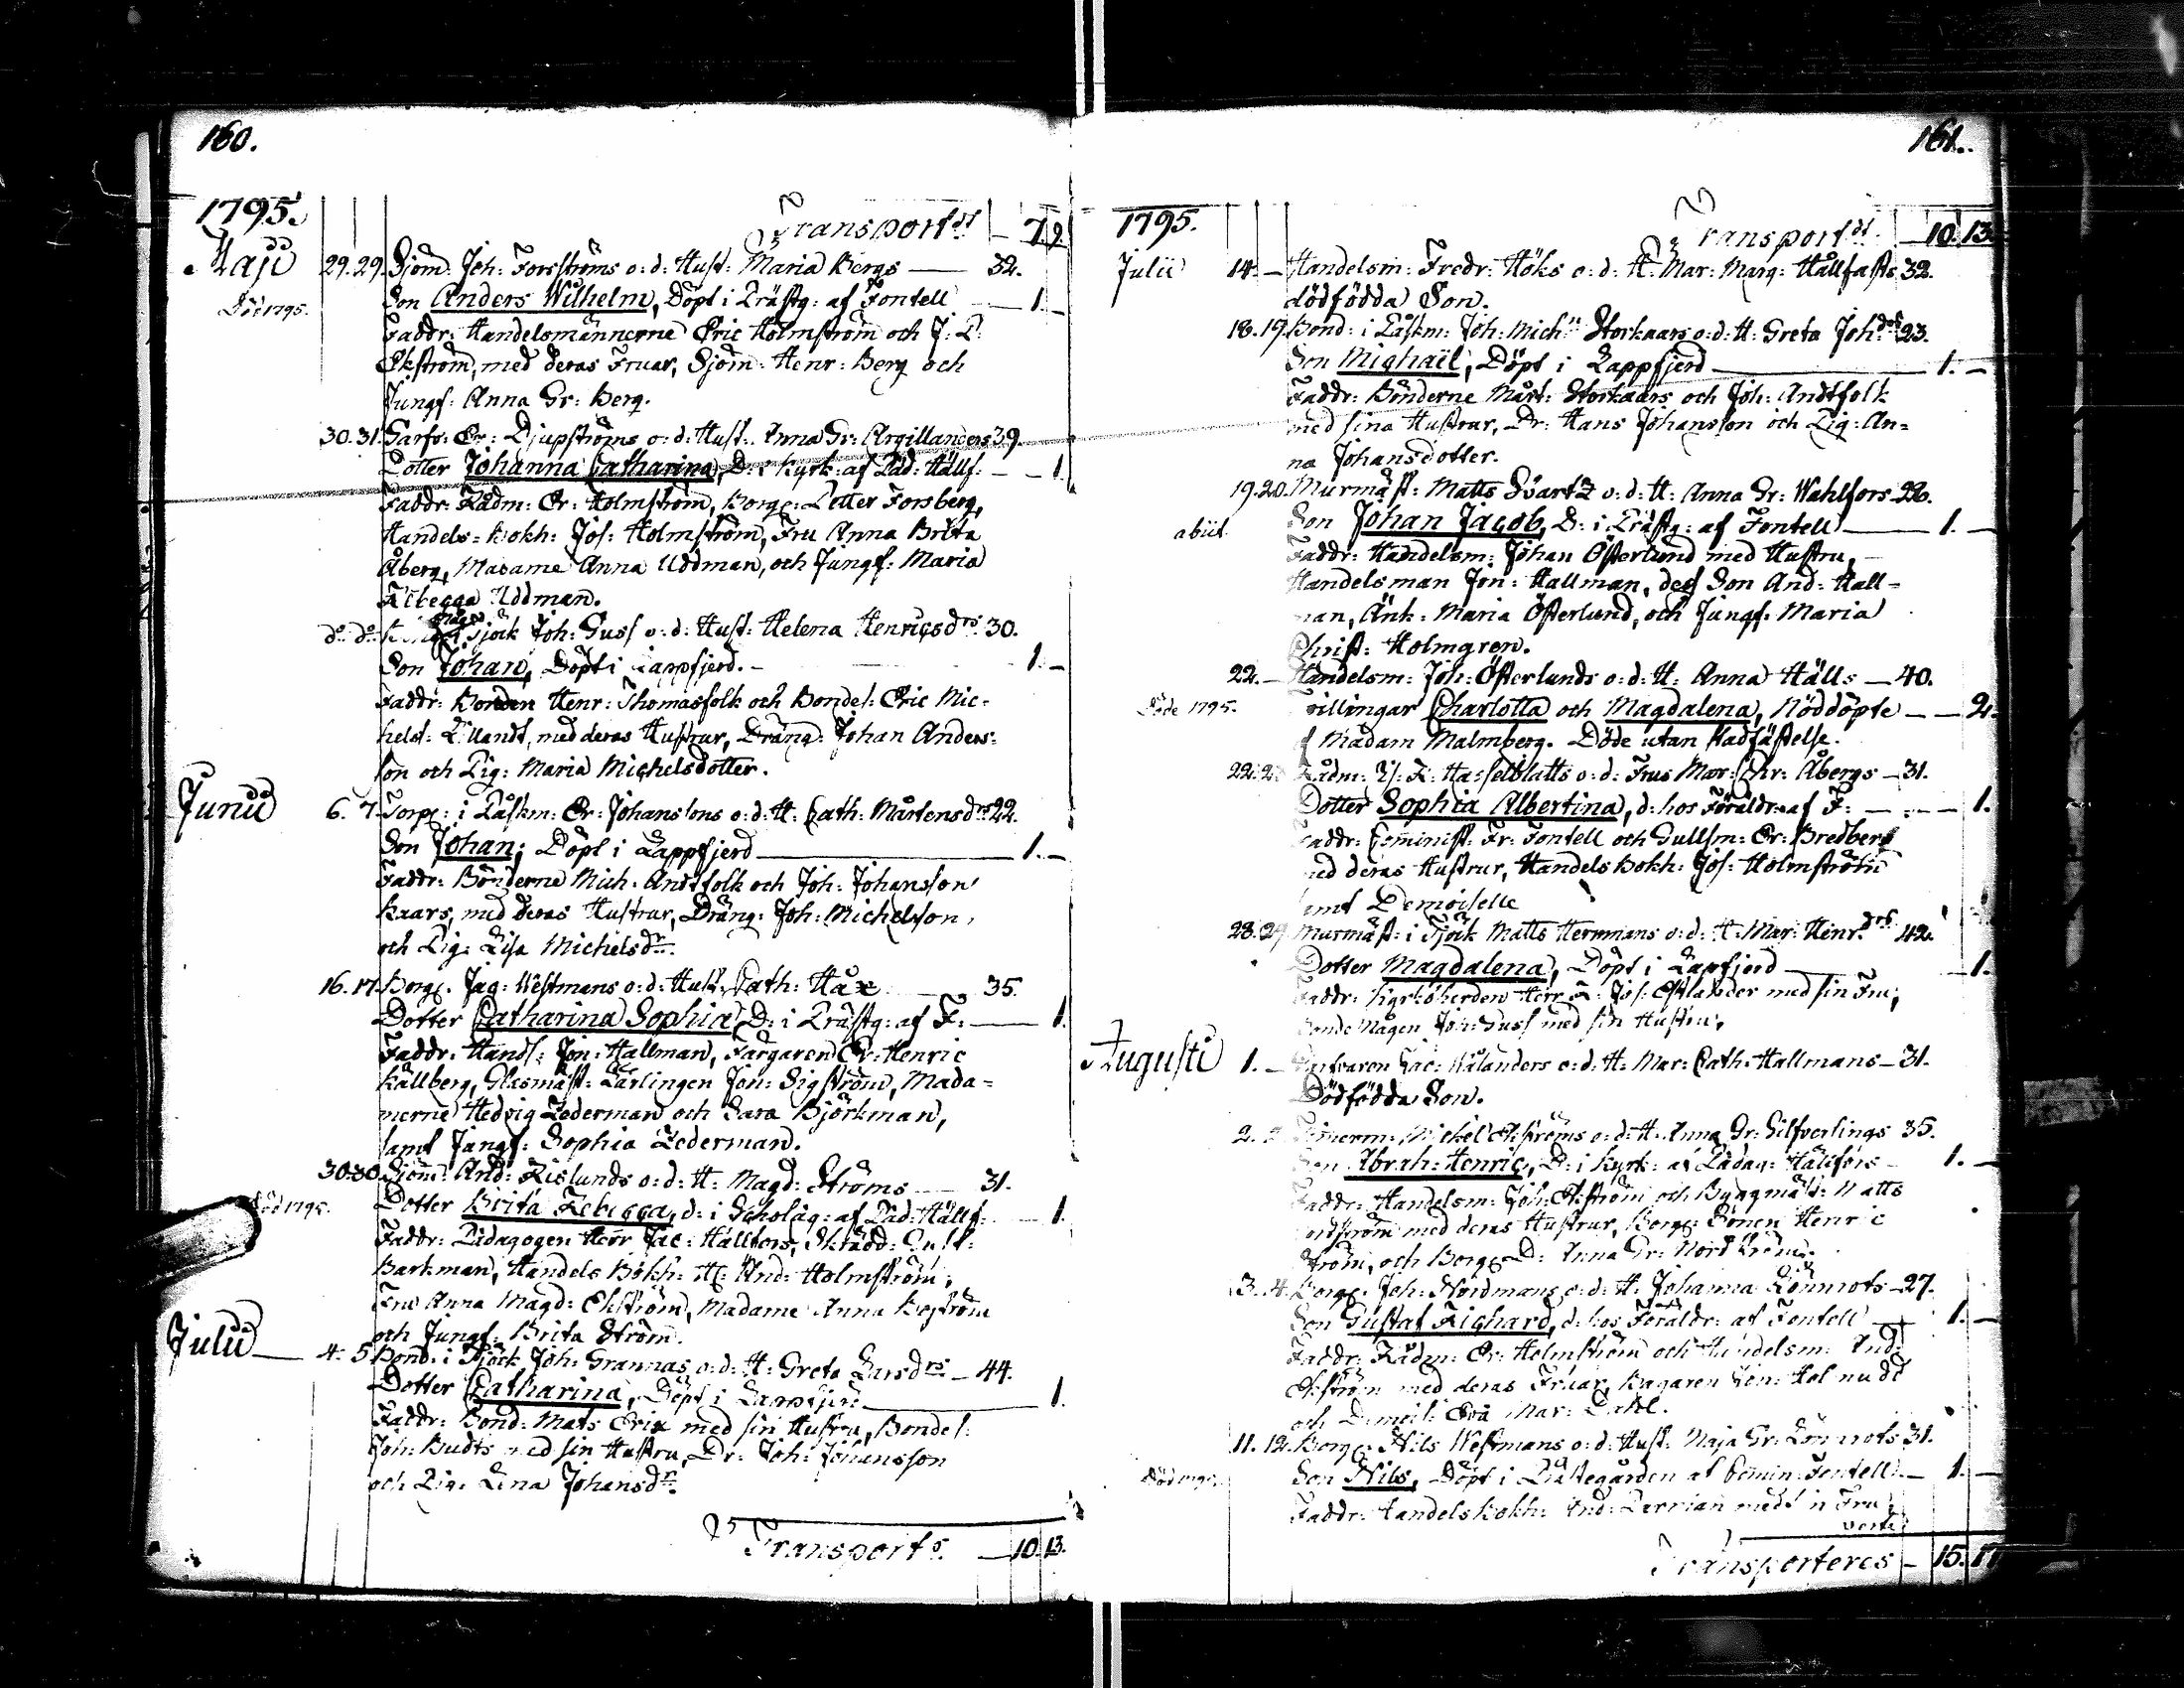 160.
1795.
Transport dt — 7. 9.
Maji 29. 29. Sjöm: Joh: Forsströms o: d: Hust: Maria Bergs — 32.
Död 1795. Son Anders Wilhelm, Döpt i Prästg: af Fontell — 1. —
Faddr: Handelsmännerne Eric Holmström och J: P:
Ekström, med deras Fruar, Sjöm: Henr: Berg och
Jungf: Anna Gr: Berg.
30. 31. Garfv: Er: Djupströms o: d: Hust: Anna Gr: Argillanders 39.
Dotter Johanna Catharina, D: i Kyrk: af Päd: Hällf: — — 1.
Faddr: Rådm: Er: Holmström, Borg: Petter Forsberg,
Handels-Bokh: Jos: Holmström, Fru Anna Brita
Åberg, Madame Anna Uddman, och Jungf: Maria
Rebegga Uddman.
do do mågen i Tjöck Joh: Guss o: d: Hust: Helena Henricsdrs 30.
Son Johan, Döpt i Lappfjerd. — 1. —
Faddr: Bonden Henr: Thomasfolk och Bondes: Eric Mic-
helss: Lillandt, med deras Hustrur, Dräng: Johan Anders-
son och Pig: Maria Michelsdotter.
Junii 6. 7. Torp: i Påskm: Er: Johanssons o: d: H: Cath: Mårtensdrs 22.
Son Johan, Döpt i Lappfjerd — 1. —
Faddr: Bönderne Mich: Andtfolk och Joh: Johansson
Kaars, med deras Hustrur, Dräng: Joh: Michelsson,
och Pig: Lisa Michelsdr.
16. 17. Borg: Jac: Westmans o: d: Hust: Cath: Håx — 35.
Dotter Catharina Sophia, D: i Prästg: af F: — 1.
Faddr: Handl: Jon: Hallman, Färgaren Er: Henric
Källberg, Glasmäst: Lärlingen Jon: Sigström, Mada-
merne Hedvig Lederman och Sara Björkman,
samt Jungf: Sophia Lederman.
30. 30. Sjöm: And: Rislunds o: d: H: Magd: Ströms — 31.
Död 1795. Dotter Brita Rebegga, d: i Scholäg: af Päd: Hällf: — 1.
Faddr: Pädagogen Herr Jac: Hällfors, Skrädd: Gust:
Barkman, Handels Bokh: And: Holmström,
Fru Anna Magd: Ekström, Madame Anna Boström
och Jungf: Brita Ström.
Julii — 4. 5. Bond: i Tjöck Joh: Grannas o: d: H: Greta Larsdrs — 44.
Dotter Catharina, Döpt i Lappfjerd — 1.
Faddr: Bond: Mats Erix med sin Hustru, Bondes:
Joh: Budts med sin Hustru, Dr: Joh: Johansson
och Pig: Lena Johansdr.
Transports. — 10. 13.
161.
1795.
Transport dt. — 10. 13.
Julii 14. — Handelsm: Fredr: Höks o: d: H: Mar: Marg: Hållfasts 32.
dödfödda Son.
18. 19. Bond: i Påskm: Joh: Michls Storkaars o: d: H: Greta Johdrs 23.
Son Mighaël, Döpt i Lappfjerd — 1. —
Faddr: Bönderne Mårt: Storkaars och Joh: Andtfolk
med sina Hustrur, Dr: Hans Johansson och Pig: An-
na Johansdotter.
19. 20. Murmäst: Matts Svartz o: d: H: Anna Gr: Wahlfors 26.
abiit. Son Johan Jacob, D: i Prästg: af Fontell — 1. —
Faddr: Handelsm: Johan Österlund med Hustru, —
Handelsman Jon: Hallman, dess Son And: Hall-
man, Änk: Maria Österlund, och Jungf: Maria
Christ: Holmgren.
22. — Handelsm: Joh: Österlunds o: d: H: Anna Hälls — 40.
Döde 1795. Tvillingar Charlotta och Magdalena, Nöddöpte — — 2.
af Madam Malmberg. Döde utan stadfästelse.
22. 23. Rådm: Is: R: Hasselblatts o: d: Frus Mar: Chr: Åbergs — 31.
Dotter Sophia Albertina, d: hos Föräldr: af F: — 1.
Faddr: Comminist: Fr: Fontell och Gullsm: Er: Bredberg
med deras Hustrur, Handels Bokh: Jos: Holmström
samt Demoiselle
28. 29. Murmäst: i Tjöck Matts Hermans o: d: H: Mar: Henr:drs 42.
Dotter Magdalena, Döpt i Lapfjerd — 1.
Faddr: Kyrkoherden Herr Jos: Estlander med sin Fru,
Bonde Mågen Joh: Guss med sin Hustru,
Augusti 1. — Garfvaren Jac: Kålanders o: d: H: Mar: Cath: Hallmans — 31.
Dödfödda Son.
2. Timerm: Michel Ekströms o: d: H: Anna Gr: Silfverlings 35.
Son Abrah: Henric, D: i Kyrk: af Pädag: Hällfors — 1. —
Faddr: Handelsm: Joh: Ekström och Byggmäst: Matts
Nordström med deras Hustrur, Borg: Sonen Henric
Ström, och Borg: D: Anna Gr: Nordström.
3. 4. Borg: Joh: Nordmans o: d: H: Johanna Lönnrots — 27.
Son Gustaf Righard, d: hos Föräldr: af Fontell — 1. —
Faddr: Rådm: Er: Holmström och Handelsm: And:
Ekström med deras Fruar, Bagaren Hen: Holmudd
och Demois: Eva Mar: Dahl.
11. 12. Borg: Nils Westmans o: d: Hust: Maja Gr: Lönnrots 31.
Död 1795. Son Nils, Döpt i Prästegården af Comin: Fontell — 1. —
Faddr: Handels Bokh: And: med sin Fru,
verte
Transporteres — 15. 17